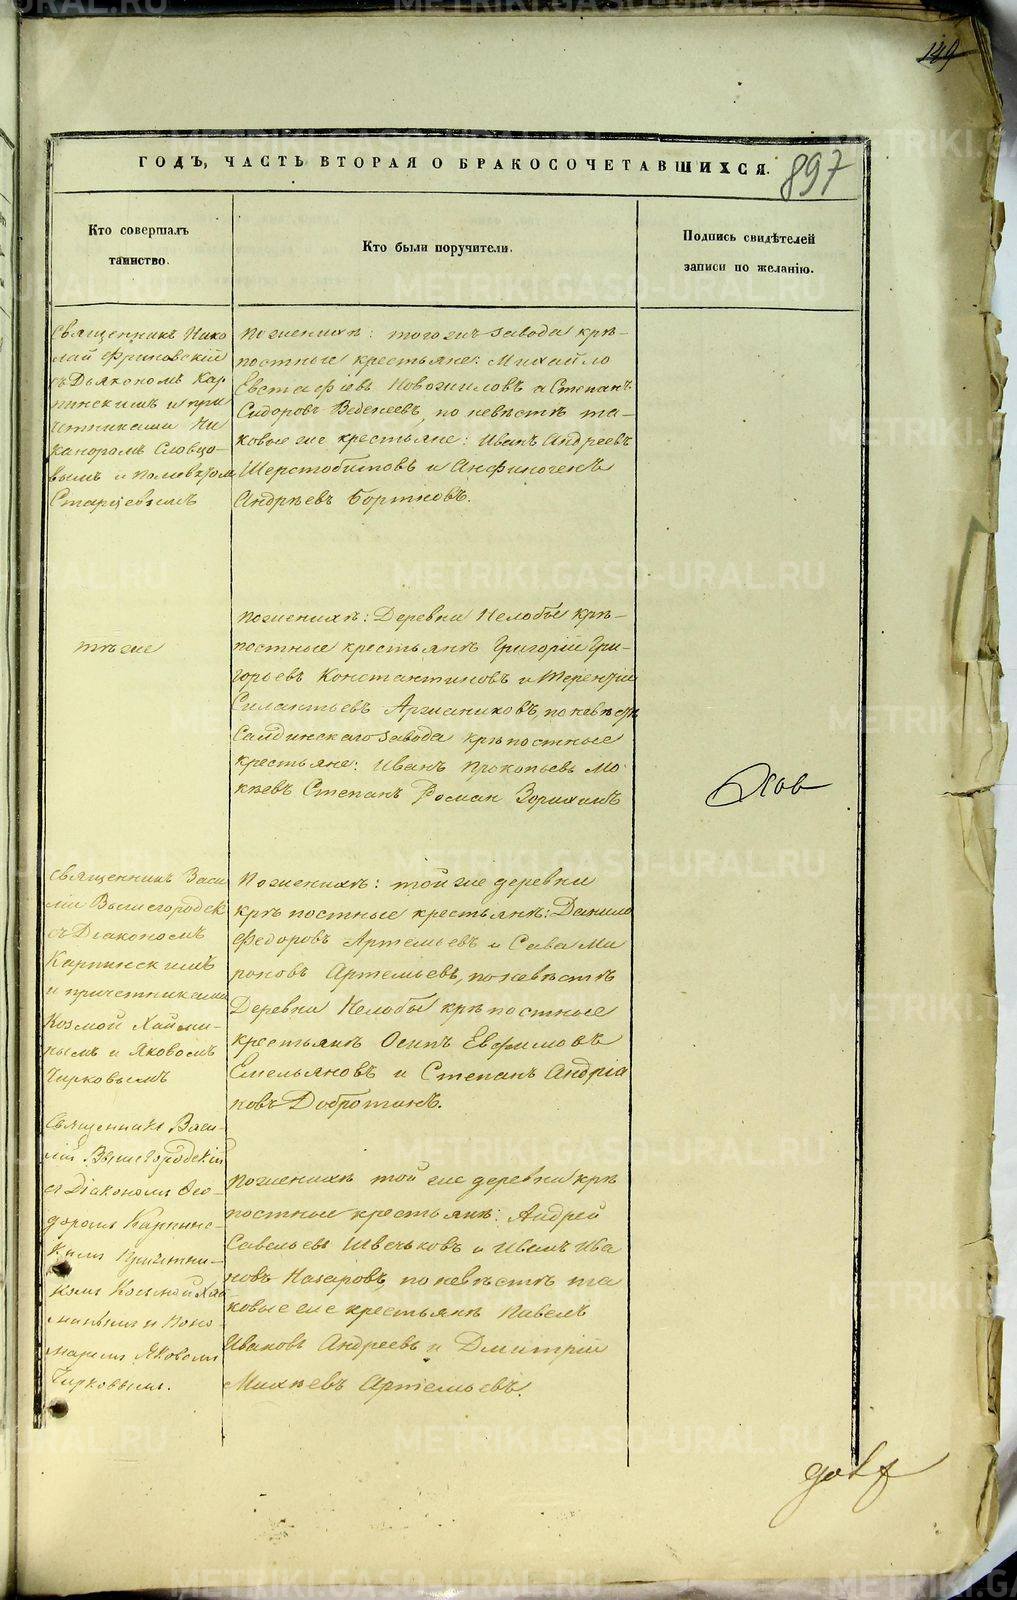 149
897
ГОДЪ, ЧАСТЬ ВТОРАЯ О БРАКОСОЧЕТАВШИХСЯ.
Кто совершалъ
таинство.
Кто были поручители.
Подпись свидѣтелей
записи по желанію.
Священникъ Нико
лай Фриновскій
съ Дьякономъ Кар
пинскимъ и при
четниками Ни
каноромъ Словцо
вымъ и
Старцевымъ
По женихѣ: того же завода крѣ-
постные крестьяне: Михайло
Евстафіевъ Новожиловъ и Степанъ
Сидоровъ Веденеевъ, по невѣстѣ та-
ковые же крестьяне: Иванъ Андреевъ
Шерстобитовъ и Анфиногенъ
Андрѣевъ Бортновъ.
тѣ же
По женихѣ: Деревни Нелобы крѣ-
постные крестьянѣ Григорій Гри-
горьевъ Константиновъ и Терентій
Силантьевъ по невѣстѣ
Салдинскаго завода крѣпостные
крестьяне: Иванъ Прокопьевъ Мо-
кѣевъ Степанъ Роман Зорихинъ
Священникъ Васи
лій Вышегородск
съ Діакономъ
Карпинскимъ
и причетниками
Козмой
нымъ и Яковомъ
Чирковымъ
По женихѣ: той же деревни
крѣпостные крестьянѣ: Данило
Федоровъ Артемьевъ и Сава Ми
роновъ Артемьевъ, по невѣстѣ
Деревни Нелобы крѣпостные
крестьянѣ Осипъ Евфимовъ
Емельяновъ и Степанъ Андріа
новъ Добротинъ.
Священникъ Васи-
лій Вышегородскій
съ Діакономъ Ѳео-
доромъ Карпинс-
кимъ Причетни-
комъ Козьмой
и Поно-
маремъ Яковомъ
Чирковымъ.
По женихѣ той же деревни крѣ
постные крестьянѣ: Андрей
Савельевъ Швечковъ и Иванъ Ива
новъ Назаровъ, по невѣстѣ та
ковые же крестьянѣ Павелъ
Ивановъ Андреевъ и Дмитрій
Михѣевъ Артемьевъ.